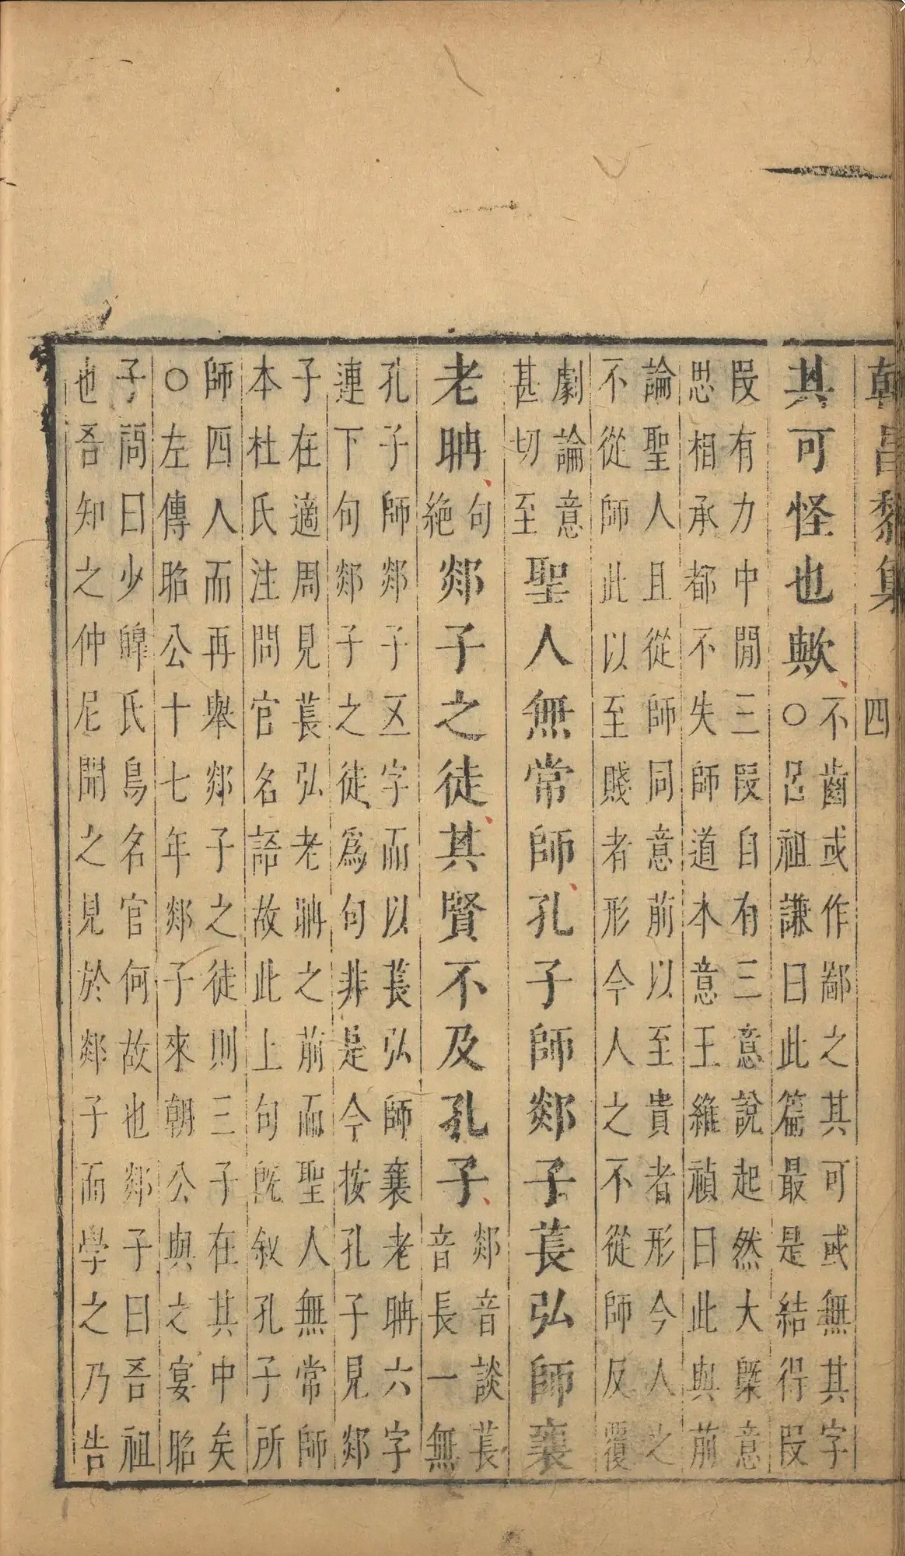 韓昌黎集 四
其可怪也歟
不齒或作鄙之其可或無其字
○呂祖謙曰此篇最是結得段
段有力中間三段自有三意說起然大槩意
思相承都不失師道本意王維禎曰此與前
論聖人且從師同意前以至貴者形今人之
不從師此以至賤者形今人之不從師反覆
劇論意
甚切至
聖人無常師孔子師郯子萇弘師襄
老聃
句
絶
郯子之徒其賢不及孔子
郯音談萇
音長一無
孔子師郯子五字而以萇弘師襄老聃六字
連下句郯子之徒爲句非是今按孔子見郯
子在適周見萇弘老聃之前而聖人無常師
本杜氏注問官名語故此上句旣叙孔子所
師四人而再舉郯子之徒則三子在其中矣
○左傳昭公十七年郯子來朝公與之宴昭
子問曰少皥氏鳥名官何故也郯子曰吾祖
也吾知之仲尼聞之見於郯子而學之乃告